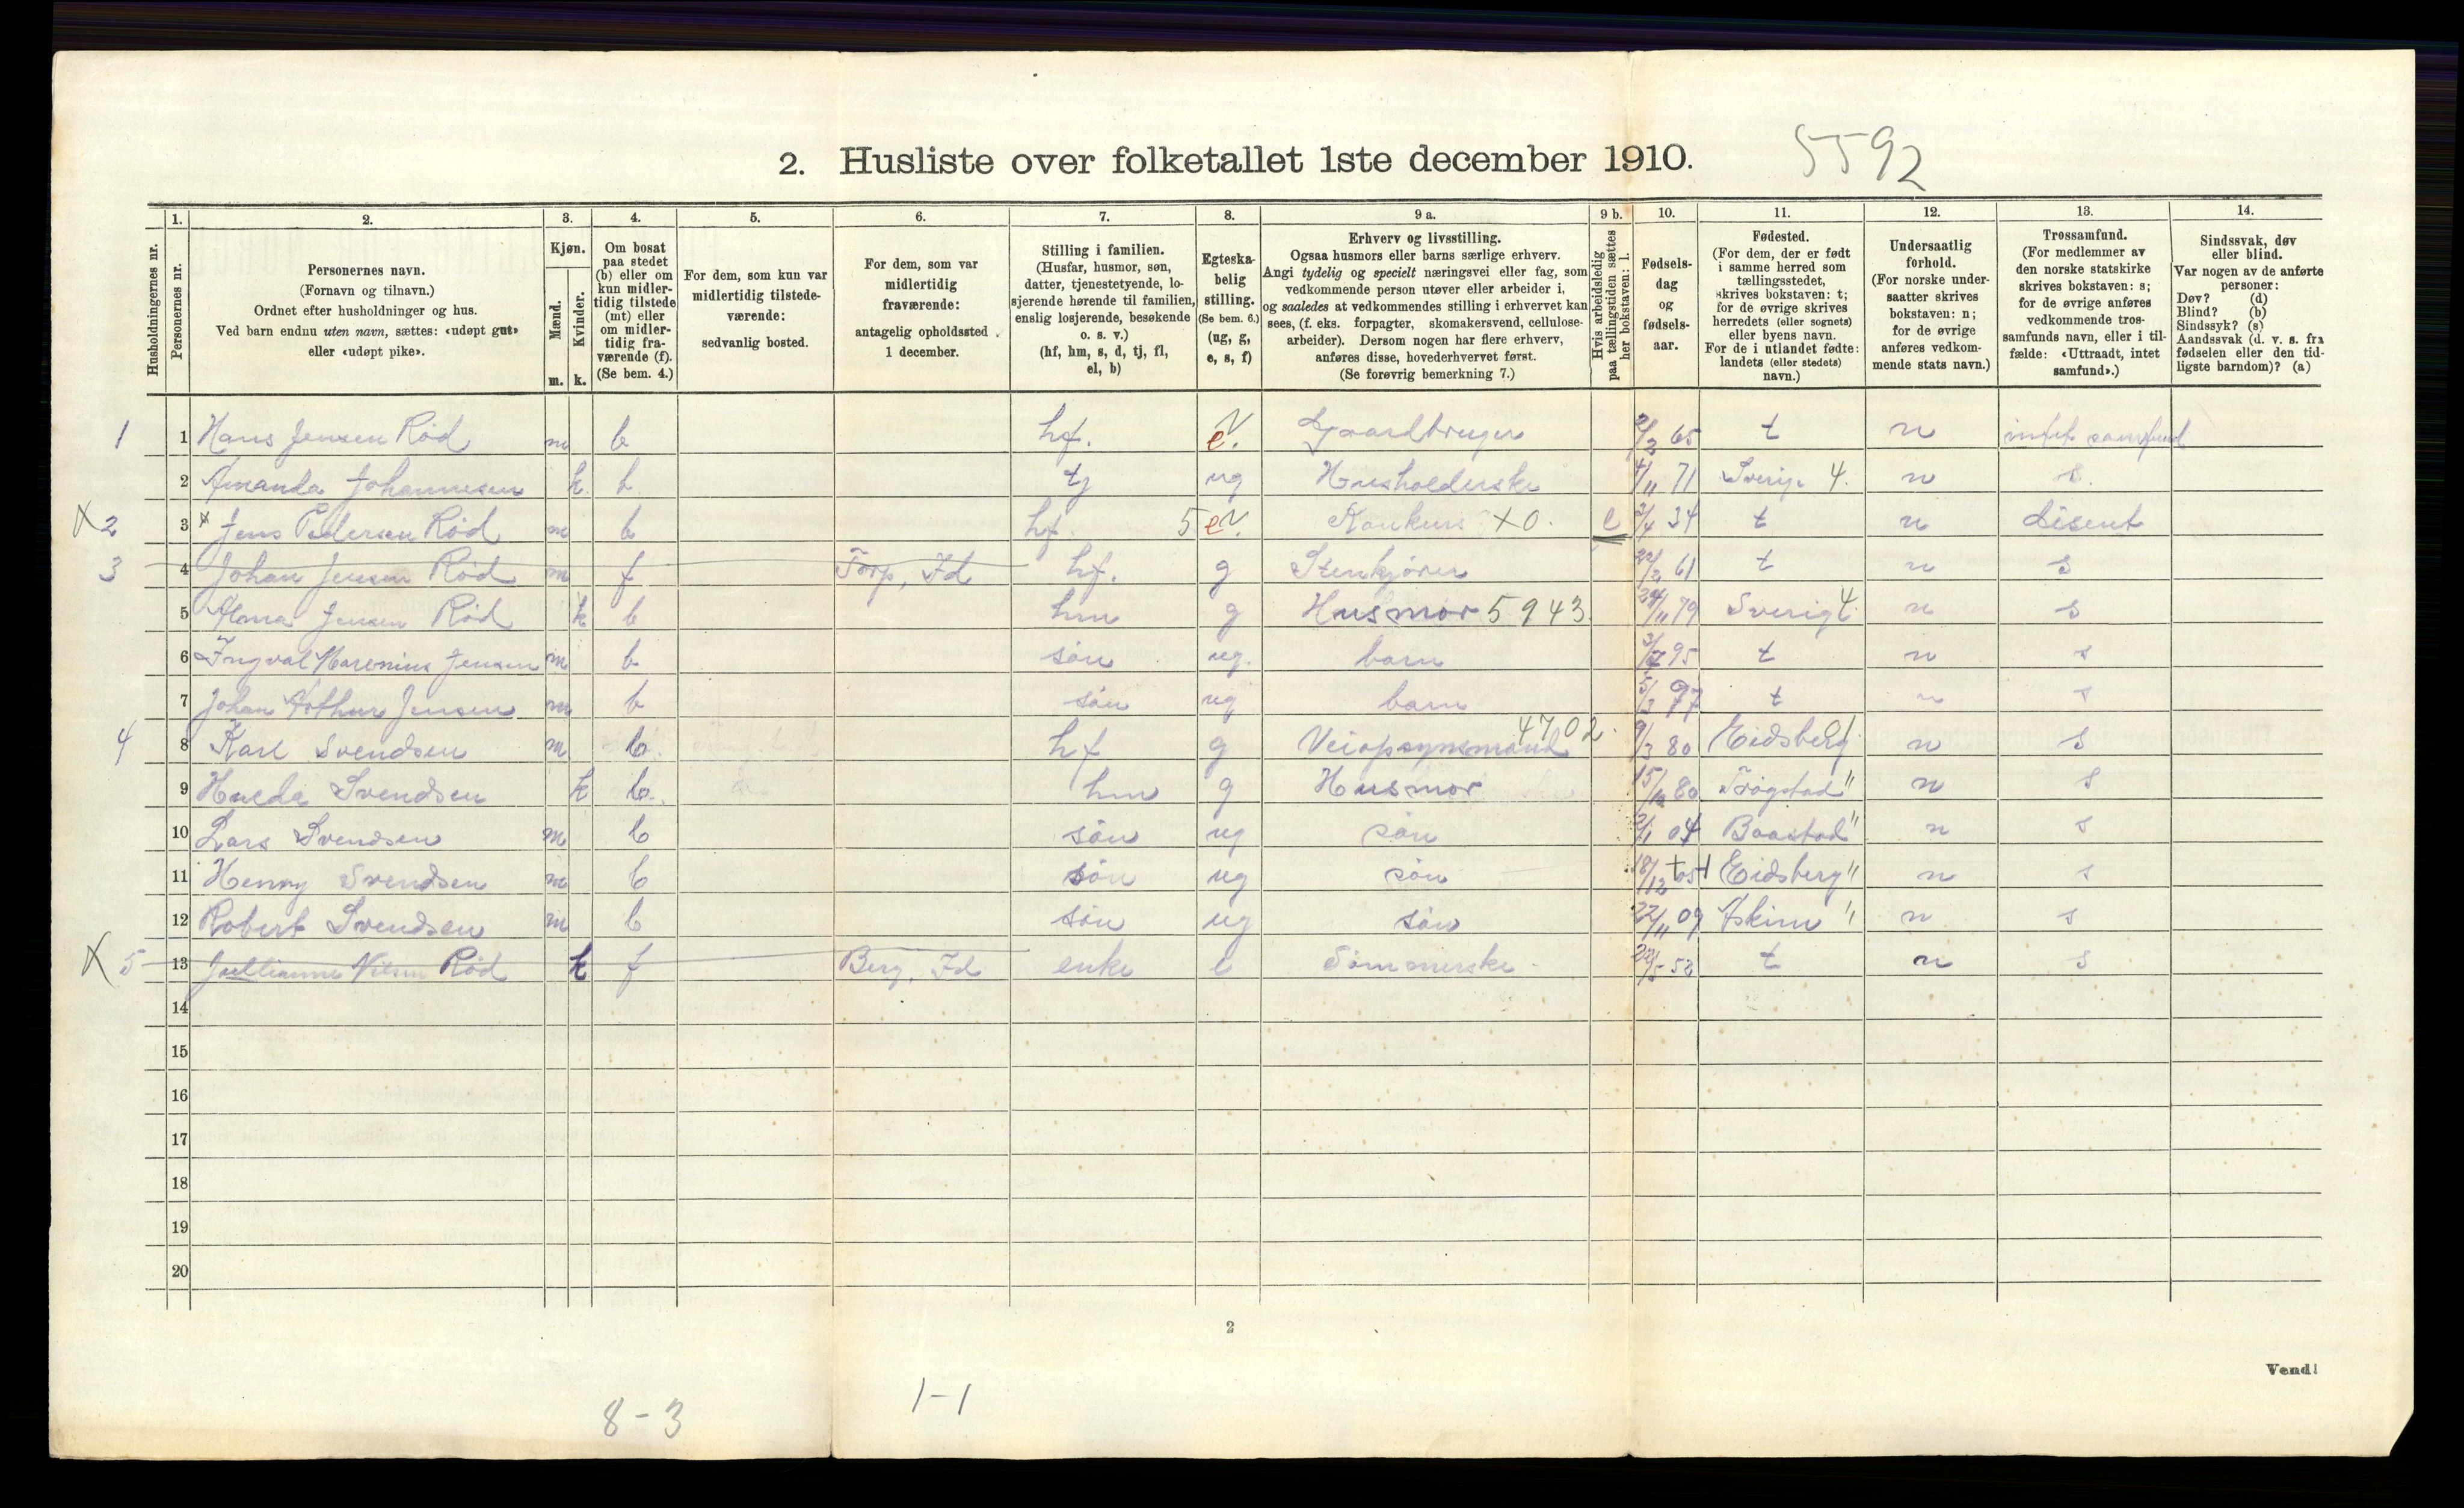 2. Husliste over folketallet 1ste december 1910. 5592
Husholdningernes nr.
1.
Personernes nr.
2.
Personernes navn.
(Fornavn og tilnavn.)
Ordnet efter husholdninger og hus.
Ved barn endnu uten navn, sættes: «udøpt gut»
eller «udøpt pike».
3.
Kjøn.
Mænd.
Kvinder.
m. k.
4.
Om bosat
paa stedet
(b) eller om
kun midler-
tidig tilstede
(mt) eller
om midler-
tidig fra-
værende (f).
(Se bem. 4.)
5.
For dem, som kun var
midlertidig tilstede-
værende:
sedvanlig bosted.
6.
For dem, som var
midlertidig
fraværende:
antagelig opholdssted
1 december.
7.
Stilling i familien.
(Husfar, husmor, søn,
datter, tjenestetyende, lo-
sjerende hørende til familien,
enslig losjerende, besøkende
o. s. v.)
(hf, hm, s, d, tj, fl,
el, b)
8.
Egteska-
belig
stilling.
(Se bem. 6.)
(ug, g,
e, s, f)
9 a.
Erhverv og livsstilling.
Ogsaa husmors eller barns særlige erhverv.
Angi tydelig og specielt næringsvei eller fag, som
vedkommende person utøver eller arbeider i,
og saaledes at vedkommendes stilling i erhvervet kan
sees, (f. eks. forpagter, skomakersvend, cellulose-
arbeider). Dersom nogen har flere erhverv,
anføres disse, hovederhvervet først.
(Se forøvrig bemerkning 7.)
9 b.
Hvis arbeidsledig
paa tællingstiden sættes
her bokstaven: l.
10.
Fødsels-
dag
og
fødsels-
aar.
11.
Fødested.
(For dem, der er født
i samme herred som
tællingsstedet,
skrives bokstaven: t;
for de øvrige skrives
herredets (eller sognets)
eller byens navn.
For de i utlandet fødte:
landets (eller stedets)
navn.)
12.
Undersaatlig
forhold.
(For norske under-
saatter skrives
bokstaven: n;
for de øvrige
anføres vedkom-
mende stats navn.)
13.
Trossamfund.
(For medlemmer av
den norske statskirke
skrives bokstaven: s;
for de øvrige anføres
vedkommende tros-
samfunds navn, eller i til-
fælde: «Uttraadt, intet
samfund».)
14.
Sindssvak, døv
eller blind.
Var nogen av de anførte
personer:
Døv? (d)
Blind? (b)
Sindssyk? (s)
Aandssvak (d. v. s. fra
fødselen eller den tid-
ligste barndom)? (a)
1 1 Hans Jensen Rød m b hf. e. Gaardbruger 2/2 65 t n intet samfund
2 Amanda Johannesen k. b. tj ug Husholderske 4/11 71 Sverige 4. n s.
X 2 3 x Jens Pedersen Rød m b hf. 5 e. X 0. l 3/4 34 t n disent
3 4 Johan Jensen Rød m f Torp, Id hf. g Stenkjører 22/2 61 t n s
5 Alma Jensen Rød k b hm g Husmor 5943 24/11 79 Sverige 4. n s
6 Ingval Marenius Jensen m b søn ug. barn 3/7 95 t n s
7 Johan Arthur Jensen m b søn ug barn 5/3 97 t n s
4 8 Karl Svendsen m b. hf g Veiopsynsmand 4702. 9/3 80 Eidsberg 01. n s
9 Hulda Svendsen k b. hm g Husmor 15/12 80 Trøgstad " n s
10 Lars Svendsen m b søn ug søn 3/1 04 Baastad " n s
11 Henny Svendsen m b søn ug søn 18/12 05 Eidsberg " n s
12 Robert Svendsen m b søn ug søn 22/11 09 Askim " n s
X 5 13 Jullianne Nilsen Rød k f Berg, Id enke e Sømmerske 22/5 52 t n s
14
15
16
17
18
19
20
2
Vend!
8-3
1-1